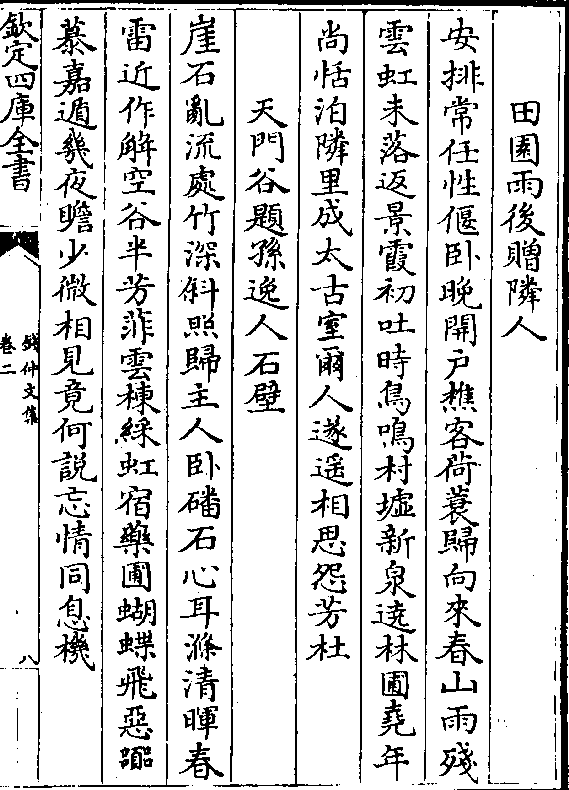 田園雨後贈隣人
安排常任性偃卧晩開户樵客荷蓑歸向來春山雨殘
雲虹未落返景霞初吐時鳥鳴村墟新泉遶林圃堯年
尚恬泊隣里成太古室爾人遂遥相思怨芳杜
天門谷題孫逸人石壁
崖石亂流處竹深斜照歸主人卧磻石心耳滌清暉春
雷近作解空谷半芳菲雲棟綵虹宿藥圃蝴蝶飛惡囂
慕嘉遁幾夜瞻少微相見竟何說忘情同息機
欽定四庫全書
錢仲文集
卷二
八